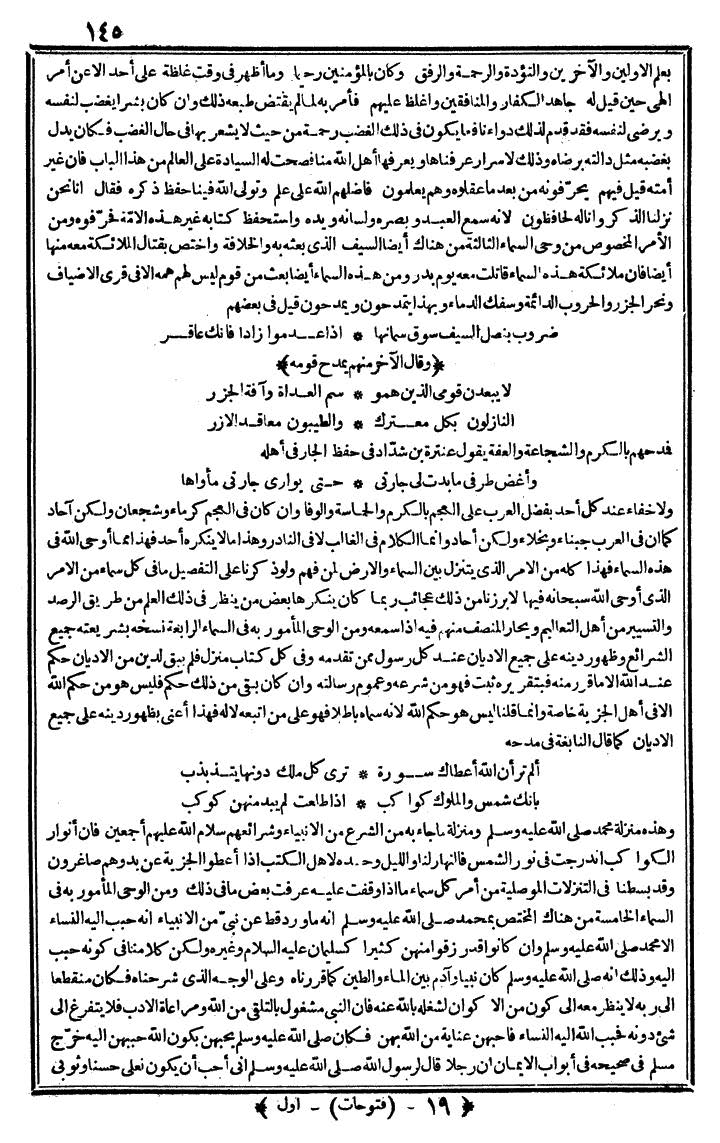 ١٤٥
بعلم الاولين والآخرين والتؤدة والرحمة والرفق وكان بالمؤمنين رحيما وما أظهر فى وقت غلظة على أحد الاعن أمر
الهى حين قيل له جاهد الكفار والمنافقين واغلظ عليهم فأمر به لما لم يقتض طبعه ذلك وان كان بشرا يغضب لنفسه
ويرضى لنفسه فقد قدم لذلك دواء نافعا يكون فى ذلك الغضب رحمة من حيث لا يشعر بها فى حال الغضب فكان يدل
بغضبه مثل دالته برضاه وذلك لاسرار عرفناها ويعرفها أهل الله منا فصحت له السيادة على العالم من هذا الباب فان غير
أمته قيل فيهم يحرّفونه من بعد ما عقلوه وهم يعلمون فاضلهم الله على علم وتولى الله فينا حفظ ذكره فقال انا نحن
نزلنا الذكر وانا له لحافظون لانه سمع العبد وبصره ولسانه ويده واستحفظ كتابه غير هذه الامّة فحرّفوه ومن
الأمر المخصوص من وحى السماء الثالثة من هناك أيضا السيف الذى بعث به والخلافة واختص بقتال الملائكة معه منها
أيضا فان ملائكة هذه السماء قاتلت معه يوم بدر ومن هذه السماء أيضا بعث من قوم ليس لهم همه الا فى قرى الاضياف
ونحر الجزر والحروب الدائمة وسفك الدماء وبهذا يتمدحون ويمدحون قيل فى بعضهم
ضروب بنصل السيف سوق سمانها * اذا عدموا زادا فانك عاقر
﴿وقال الآخر منهم يمدح قومه﴾
لا يبعدن قومى الذين همو * سم العداة وآفة الجزر
النازلون بكل معترك * والطيبون معاقد الازر
فمدحهم بالكرم والشجاعة والعفة يقول عنترة بن شدّاد فى حفظ الجار فى أهله
وأغض طرفى ما بدت لى جارتى * حتى يوارى جارتى مأواها
ولا خفاء عند كل أحد بفضل العرب على العجم بالكرم والحماسة والوفا وان كان فى العجم كرماء وشجعان ولكن آحاد
كما ان فى العرب جبناء وبخلاء ولكن آحاد وانما الكلام فى الغالب لا فى النادر وهذا ما لا ينكره أحد فهذا مما أوحى الله فى
هذه السماء فهذا كله من الامر الذى يتنزل بين السماء والارض لمن فهم ولو ذكرنا على التفصيل ما فى كل سماء من الامر
الذى أوحى الله سبحانه فيها لابرزنا من ذلك عجائب ربما كان ينكرها بعض من ينظر فى ذلك العلم من طريق الرصد
والتسيير من أهل التعاليم ويحار المنصف منهم فيه اذا سمعه ومن الوحى المأمور به فى السماء الرابعة نسخه بشريعته جميع
الشرائع وظهور دينه على جميع الاديان عند كل رسول ممن تقدمه وفى كل كتاب منزل فلم يبق لدين من الاديان حكم
عند الله الا ما قرر منه فبتقريره ثبت فهو من شرعه وعموم رسالته وان كان بقى من ذلك حكم فليس هو من حكم الله
الا فى أهل الجزية خاصة وانما قلنا ليس هو حكم الله لانه سماه باطلا فهو على من اتبعه لا له فهذا أعنى بظهور دينه على جميع
الاديان كما قال النابغة فى مدحه
ألم تر أن الله أعطاك سورة * ترى كل ملك دونها يتذبذب
بانك شمس والملوك كواكب * اذا طلعت لم يبد منهن كوكب
وهذه منزلة محمد صلى الله عليه وسلم ومنزلة ما جاء به من الشرع من الانبياء وشرائعهم سلام الله عليهم أجمعين فان أنوار
الكواكب اندرجت فى نور الشمس فالنهار لنا والليل وحده لاهل الكتب اذا أعطوا الجزية عن يد وهم صاغرون
وقد بسطنا فى التنزلات الموصلية من أمر كل سماء ما اذا وقفت عليه عرفت بعض ما فى ذلك ومن الوحى المأمور به فى
السماء الخامسة من هناك المختص بمحمد صلى الله عليه وسلم انه ما ورد قط عن نبىّ من الانبياء انه حبب اليه النساء
الا محمد صلى الله عليه وسلم وان كانوا قد رزقوا منهن كثيرا كسليمان عليه السلام وغيره ولكن كلامنا فى كونه حبب
اليه وذلك انه صلى الله عليه وسلم كان نبيا وآدم بين الماء والطين كما قررناه وعلى الوجه الذى شرحناه فكان منقطعا
الى ربه لا ينظر معه الى كون من الاكوان لشغله بالله عنه فان النبى مشغول بالتلقى من الله ومراعاة الادب فلا يتفرغ الى
شئ دونه فحبب الله اليه النساء فاحبهن عناية من الله بهن فكان صلى الله عليه وسلم يحبهن بكون الله حببهن اليه خرّج
مسلم فى صحيحه فى أبواب الايمان ان رجلا قال لرسول الله صلى الله عليه وسلم انى أحب أن يكون نعلى حسنا وثوبى
﴿ ١٩ - (فتوحات) - اول ﴾